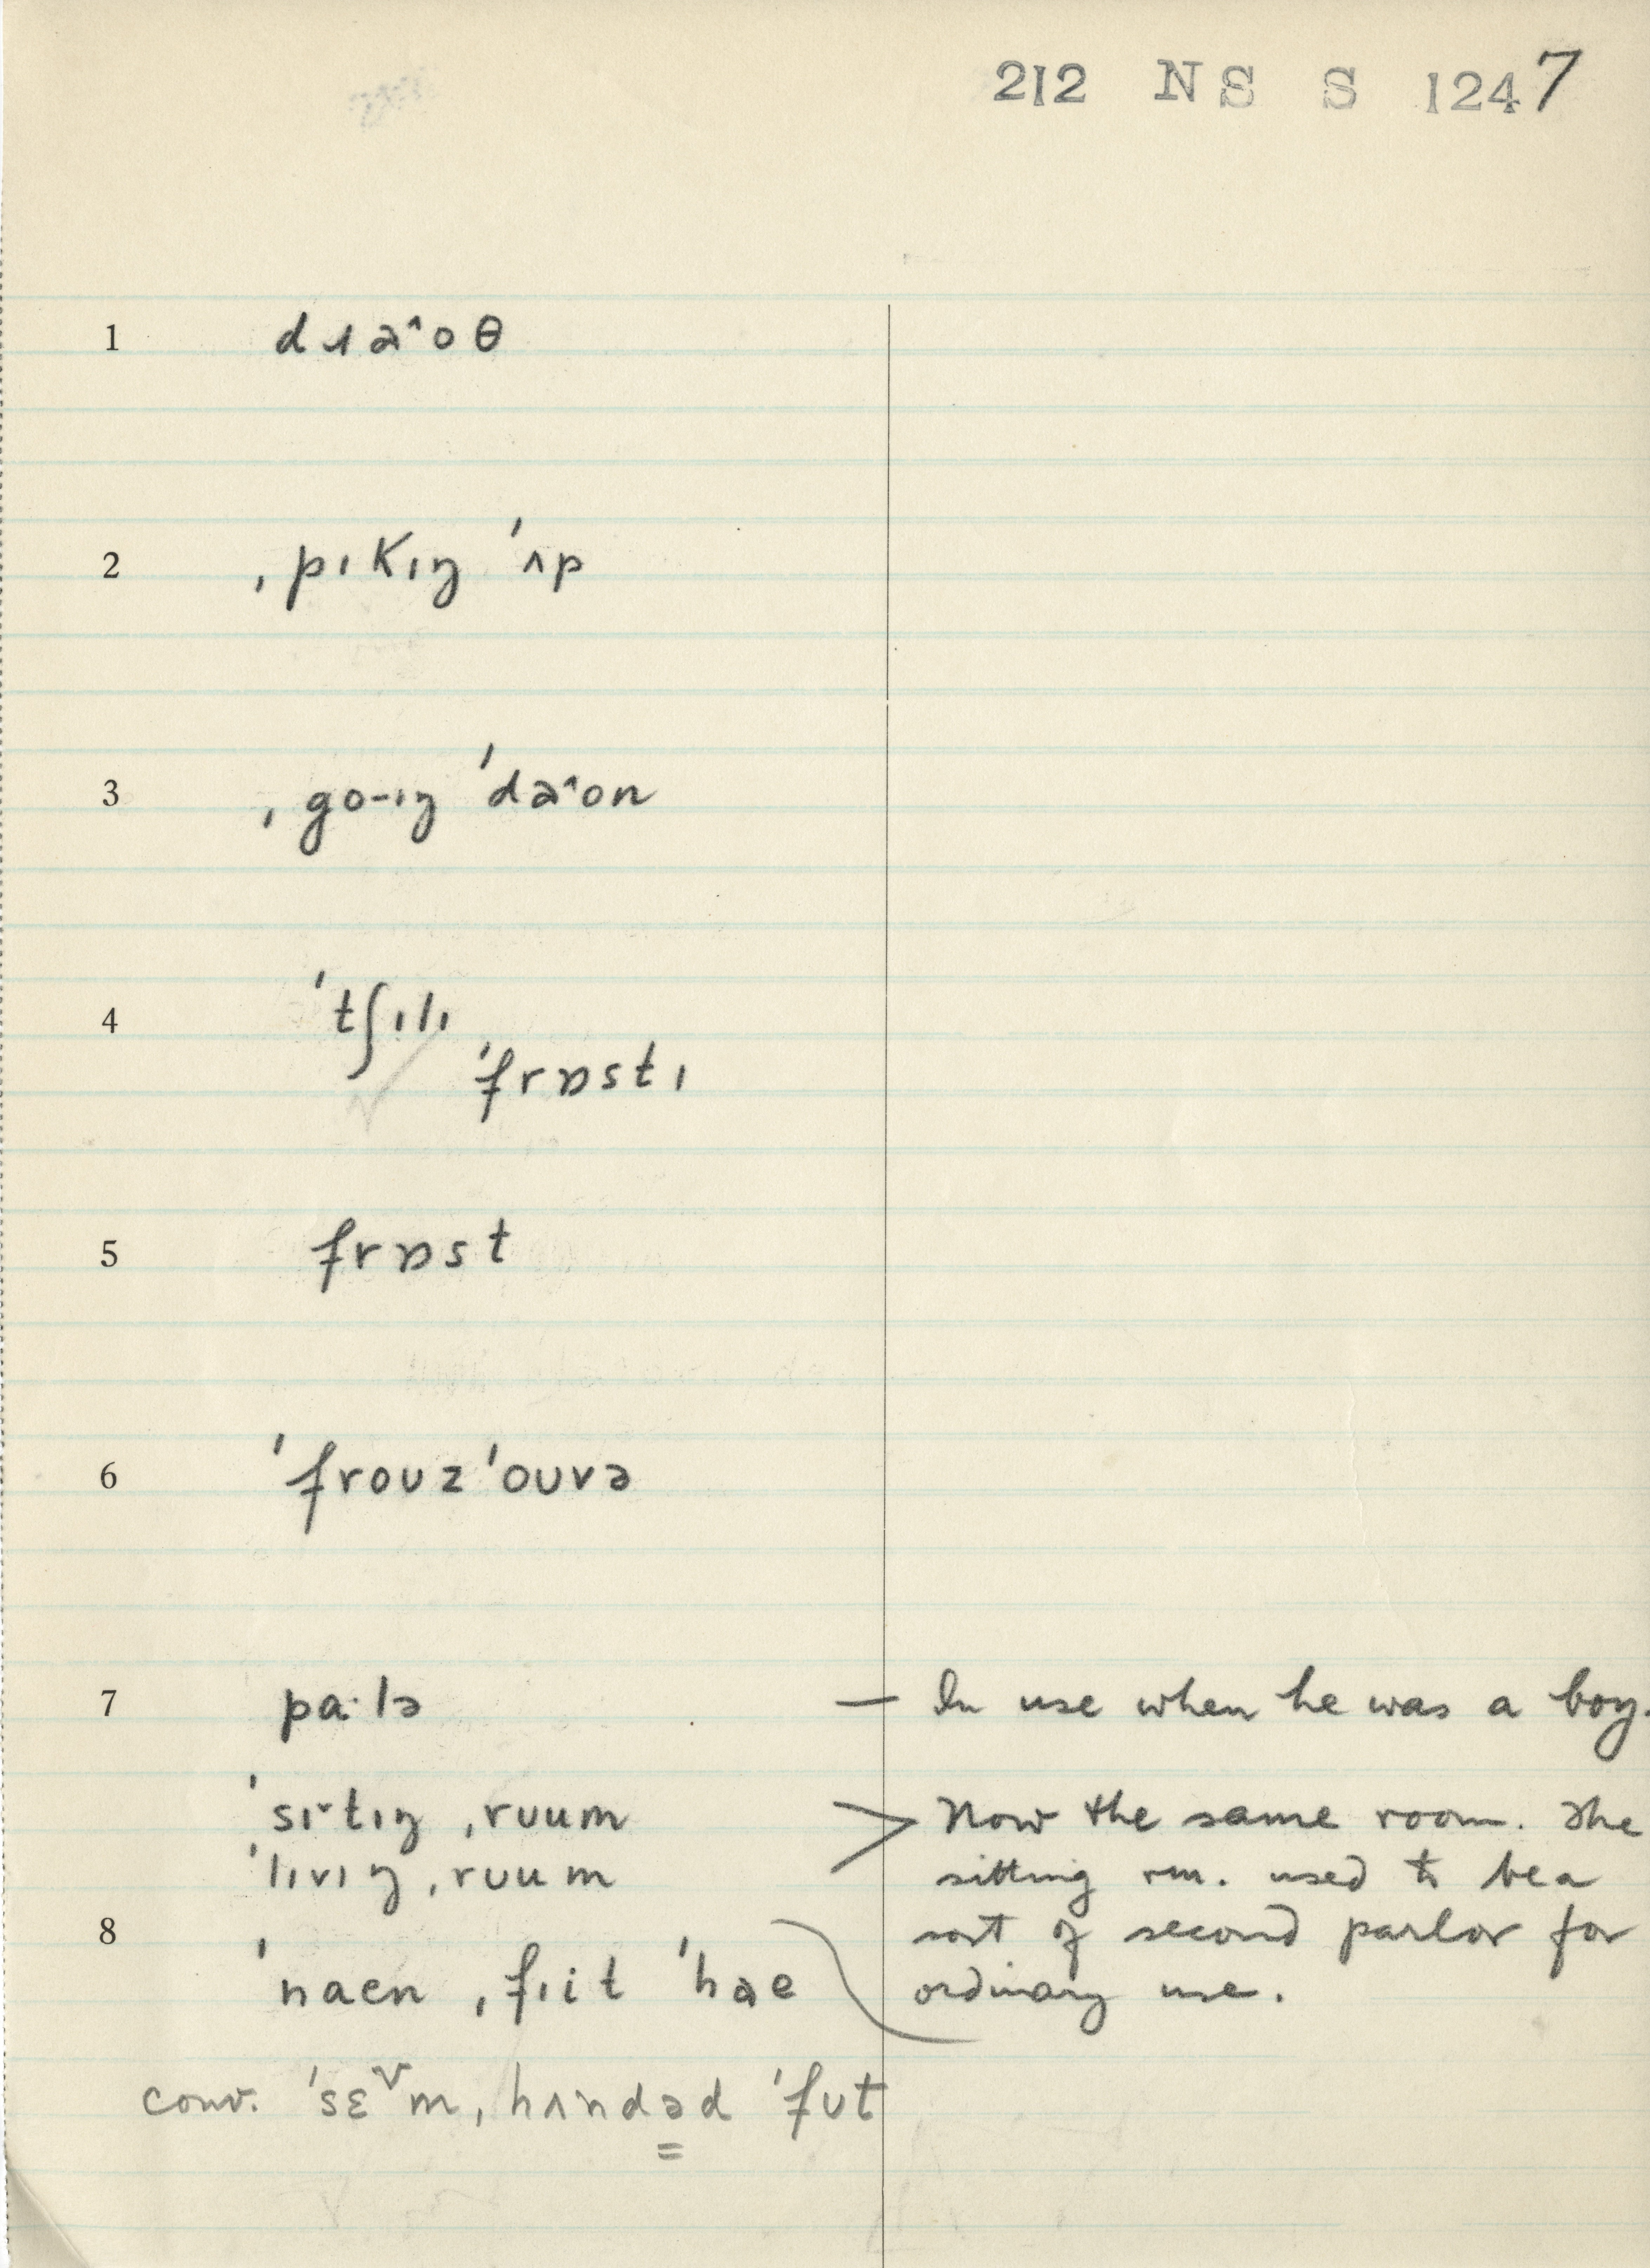 212 NS S 1247
1 dɹa^oθ
2 ˌpɪkɪŋ ˈʌp
3 ˌgo-ɪŋ ˈda^on
4 ˈtʃɪlɪ
ˈfrɒstɪ
5 frɒst
6 ˈfroʊzˈoʊvə
7 pa·lə — In use when he was a boy.
ˈsɪ˅tɪŋ ˌruum > Now the same room. The
ˈlɪvɪŋ ˌruum sitting rm. used to be a
8 sort of second parlor for
ˈnaen ˌfɪit ˈhae ordinary use.
conv. ˈsɛ˅m ˌhʌndəd ˈfʊt